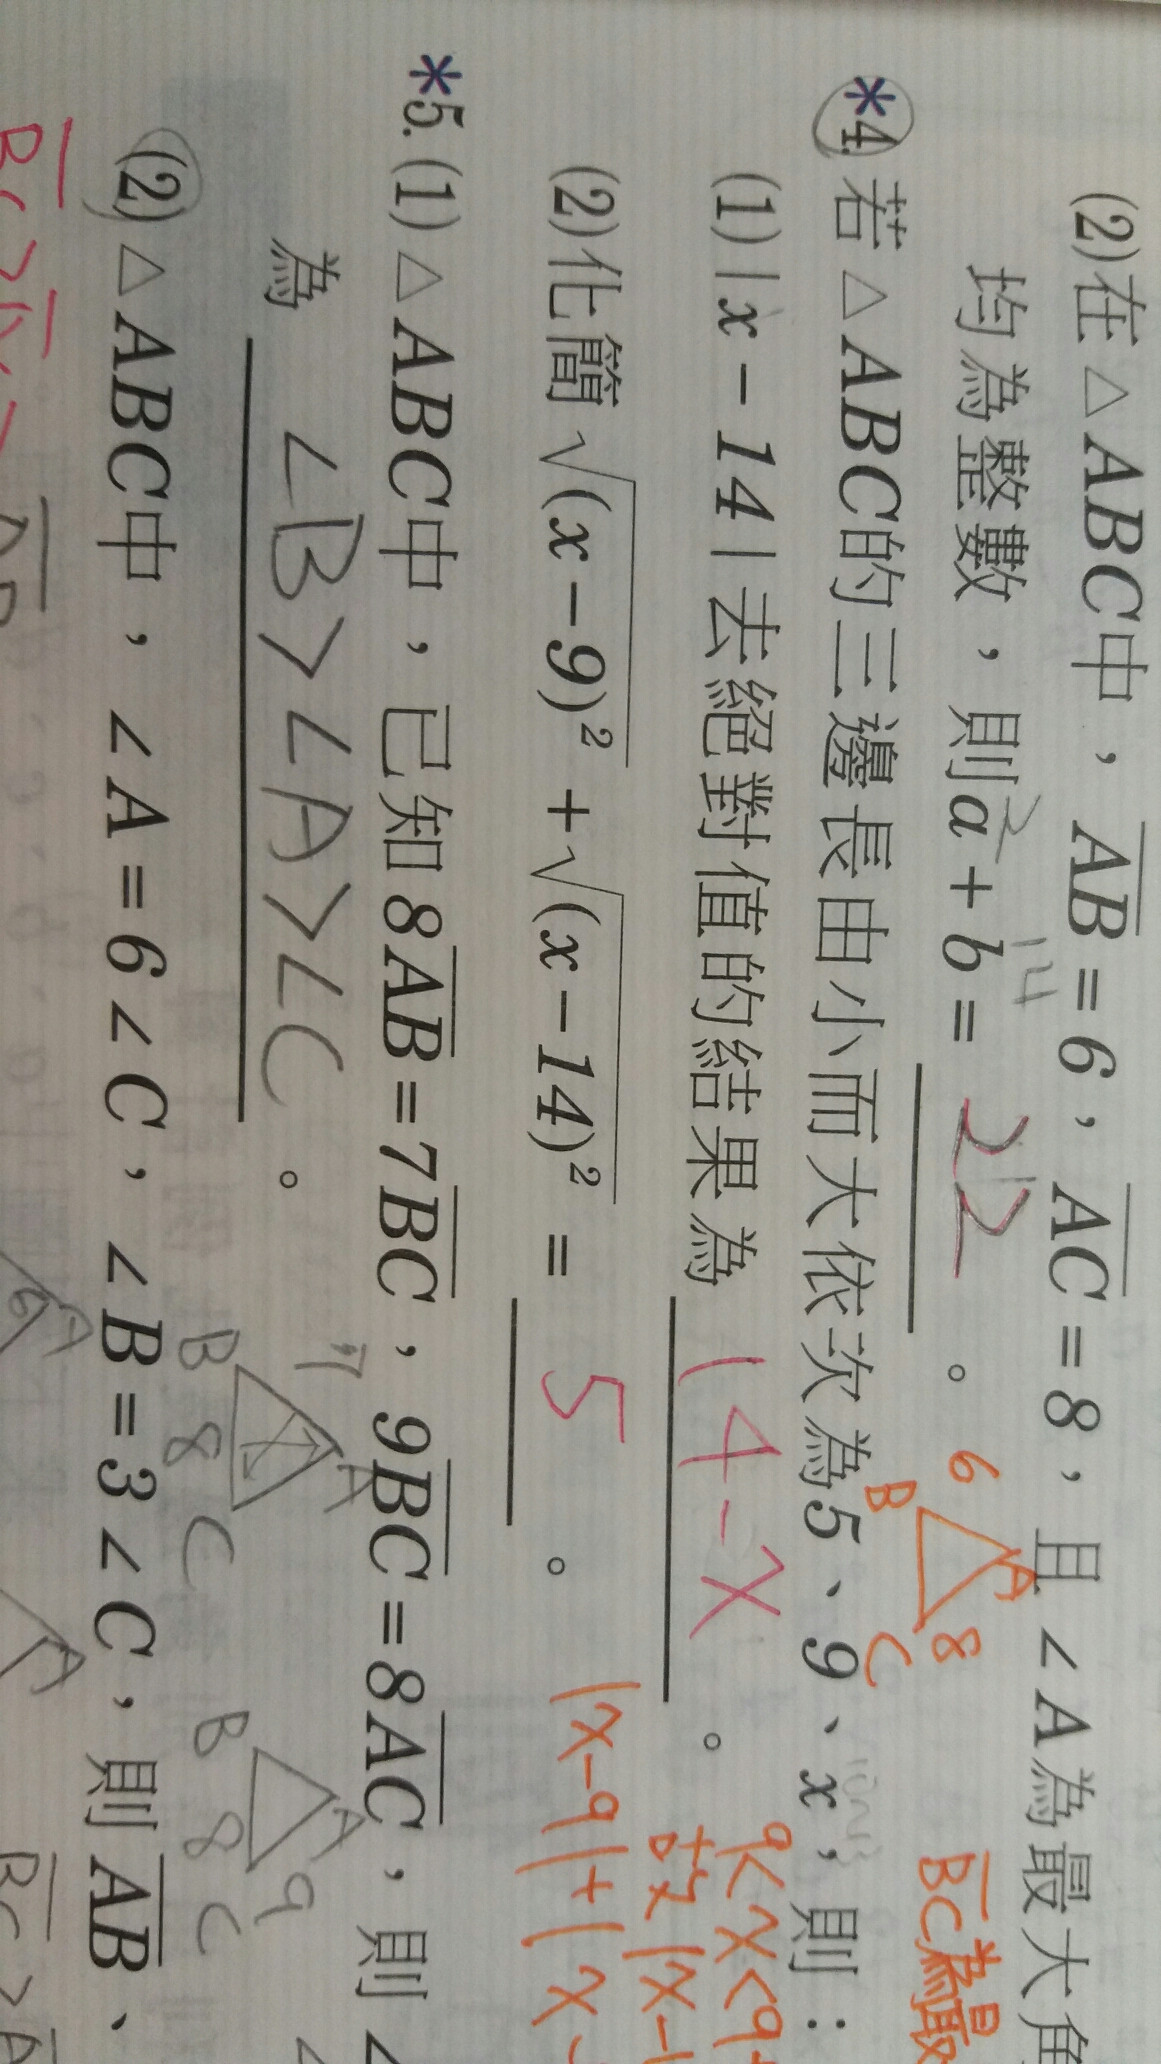 (2)在△ABC中，AB=6，AC=8，且∠A為最大角
均為整數，則a+b= 22 。
2 14
6 A B 8 C
BC為最
*4.若△ABC的三邊長由小而大依次為5、9、x，則：
(1)|x-14|去絕對值的結果為 14-x 。
9<x<9+
(2)化簡√(x-9)²+√(x-14)²= 5 。
|x-9|+|x-
*5.(1)△ABC中，已知8AB=7BC，9BC=8AC，則∠
為 ∠B>∠A>∠C 。
7 A B 8 C
A B 8 C 9
(2)△ABC中，∠A=6∠C，∠B=3∠C，則AB、